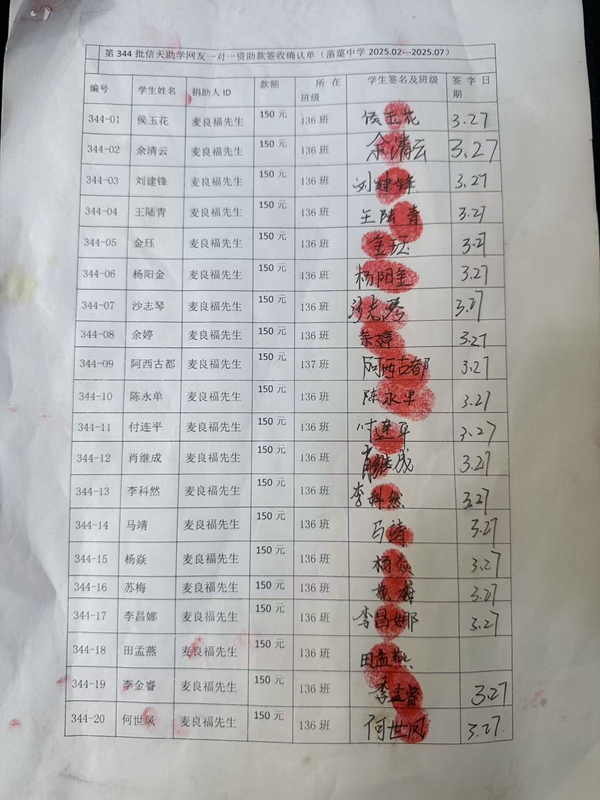 第 344 批信天助学网友一对一资助款签收确认单（菠萁中学 2025.02---2025.07）
编号 学生姓名 捐助人 ID 款额 所在班级 学生签名及班级 签字日期
344-01 侯玉花 麦良福先生 150 元 136 班 侯玉花 3.27
344-02 余清云 麦良福先生 150 元 136 班 余清云 3.27
344-03 刘建锋 麦良福先生 150 元 136 班 刘建锋 3.27
344-04 王陆青 麦良福先生 150 元 136 班 王陆青 3.27
344-05 金珏 麦良福先生 150 元 136 班 金珏 3.27
344-06 杨阳金 麦良福先生 150 元 136 班 杨阳金 3.27
344-07 沙志琴 麦良福先生 150 元 136 班 沙志琴 3.27
344-08 余婷 麦良福先生 150 元 136 班 余婷 3.27
344-09 阿西古都 麦良福先生 150 元 137 班 阿西古都 3.27
344-10 陈永单 麦良福先生 150 元 136 班 陈永单 3.27
344-11 付连平 麦良福先生 150 元 136 班 付连平 3.27
344-12 肖继成 麦良福先生 150 元 136 班 肖继成 3.27
344-13 李科然 麦良福先生 150 元 136 班 李科然 3.27
344-14 马靖 麦良福先生 150 元 136 班 马靖 3.27
344-15 杨焱 麦良福先生 150 元 136 班 杨焱 3.27
344-16 苏梅 麦良福先生 150 元 136 班 3.27
344-17 李昌娜 麦良福先生 150 元 136 班 李昌娜 3.27
344-18 田孟燕 麦良福先生 150 元 136 班 田孟燕
344-19 李金睿 麦良福先生 150 元 136 班 李金睿 3.27
344-20 何世凤 麦良福先生 150 元 136 班 何世凤 3.27